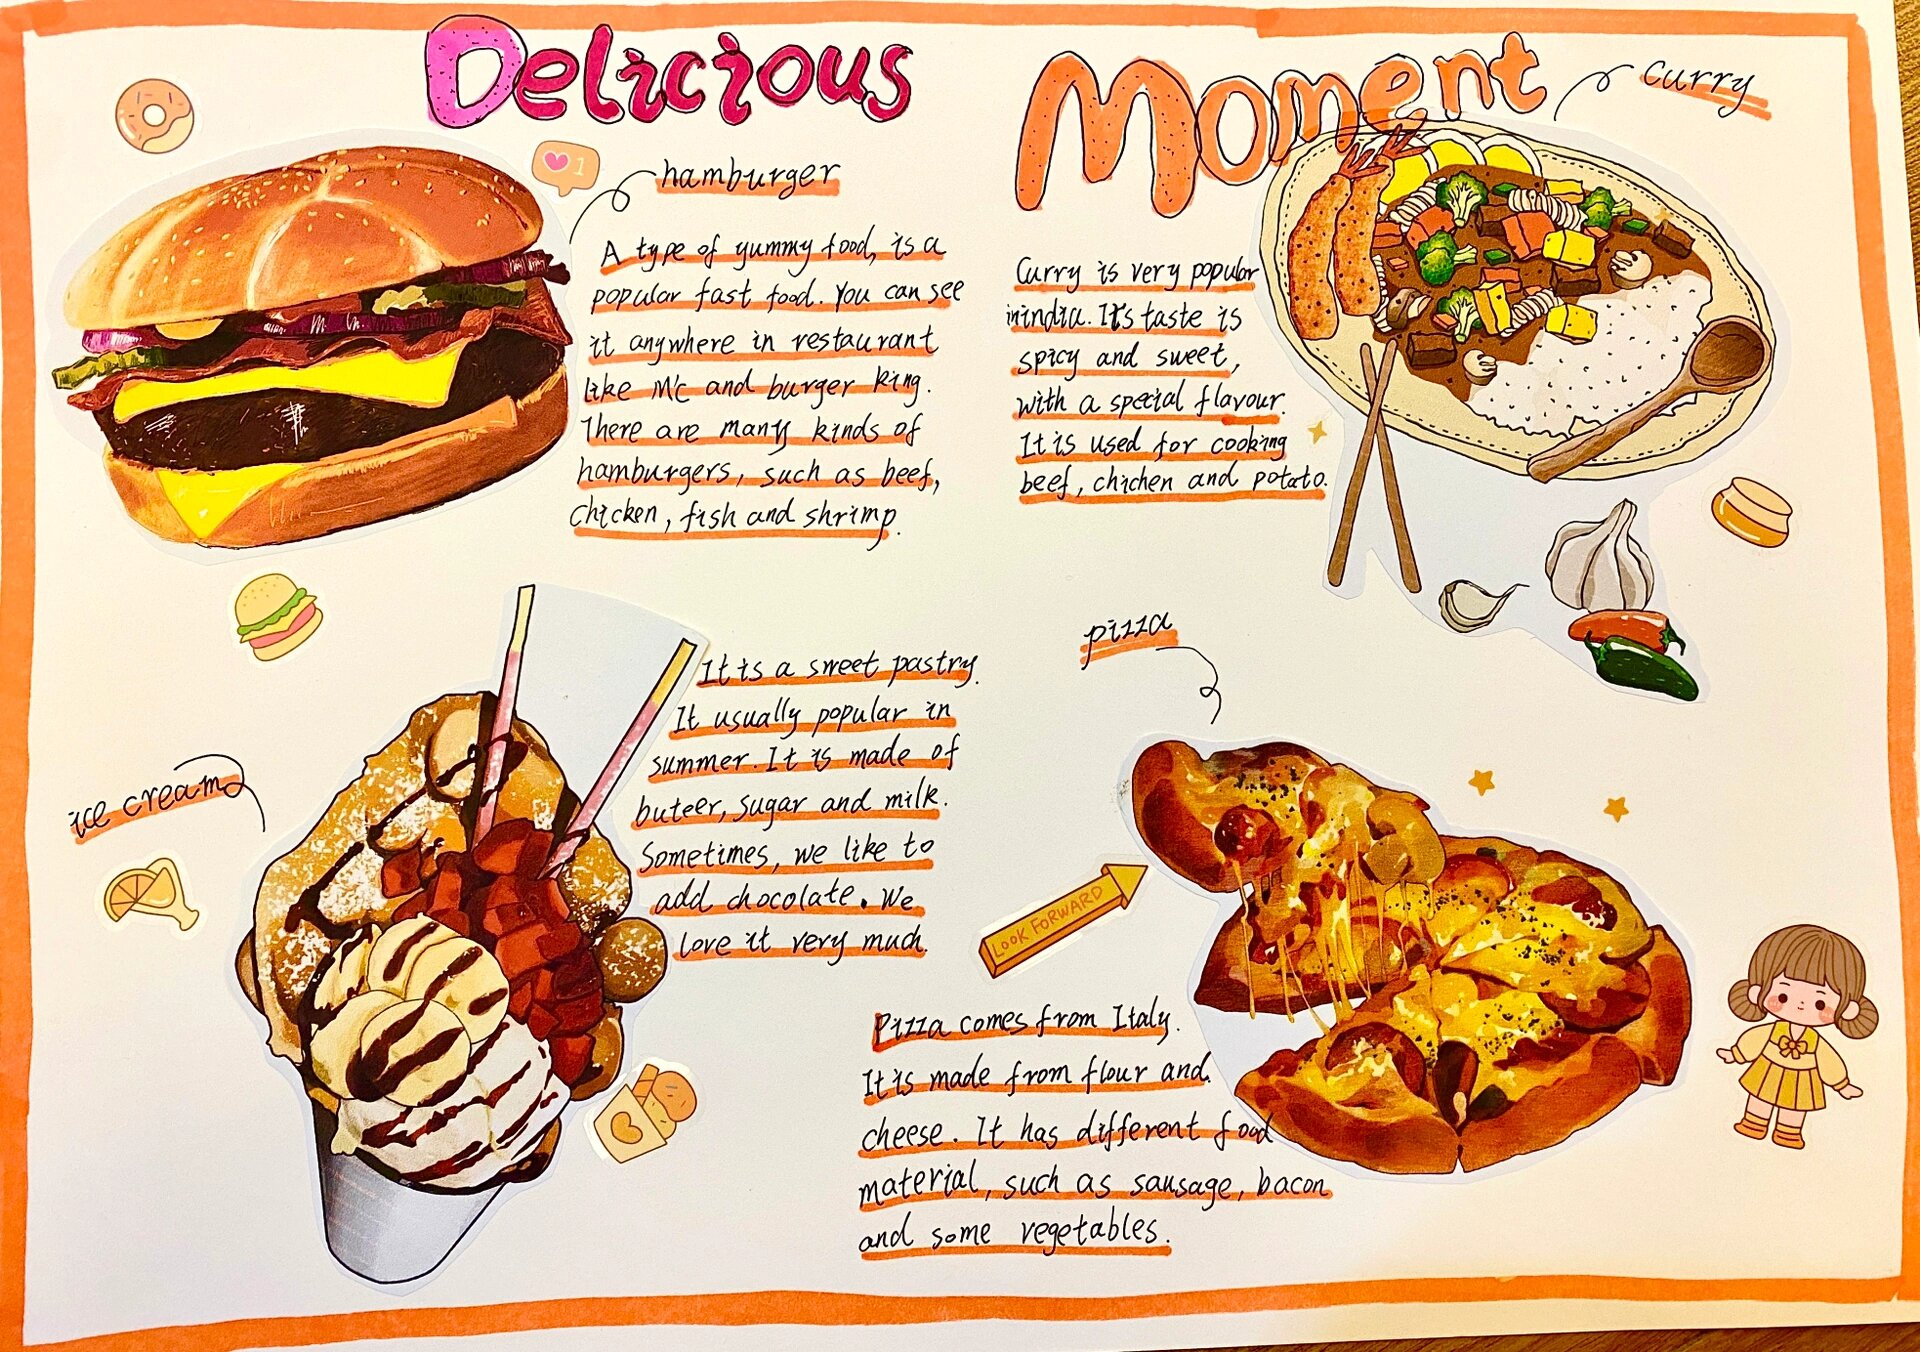 Delicious Moment
hamburger
A type of yummy food, is a
popular fast food. You can see
it anywhere in restaurant
like M'c and burger king.
There are many kinds of
hamburgers, such as beef,
chicken, fish and shrimp.
curry
Curry is very popular
in india. It's taste is
spicy and sweet,
with a special flavour.
It is used for cooking
beef, chichen and potato.
ice cream
It is a sweet pastry.
It usually popular in
summer. It is made of
buteer, sugar and milk.
Sometimes, we like to
add chocolate. We
love it very much.
pizza
LOOK FORWARD
Pizza comes from Italy.
It is made from flour and
cheese. It has different food
material, such as sausage, bacon
and some vegetables.
1